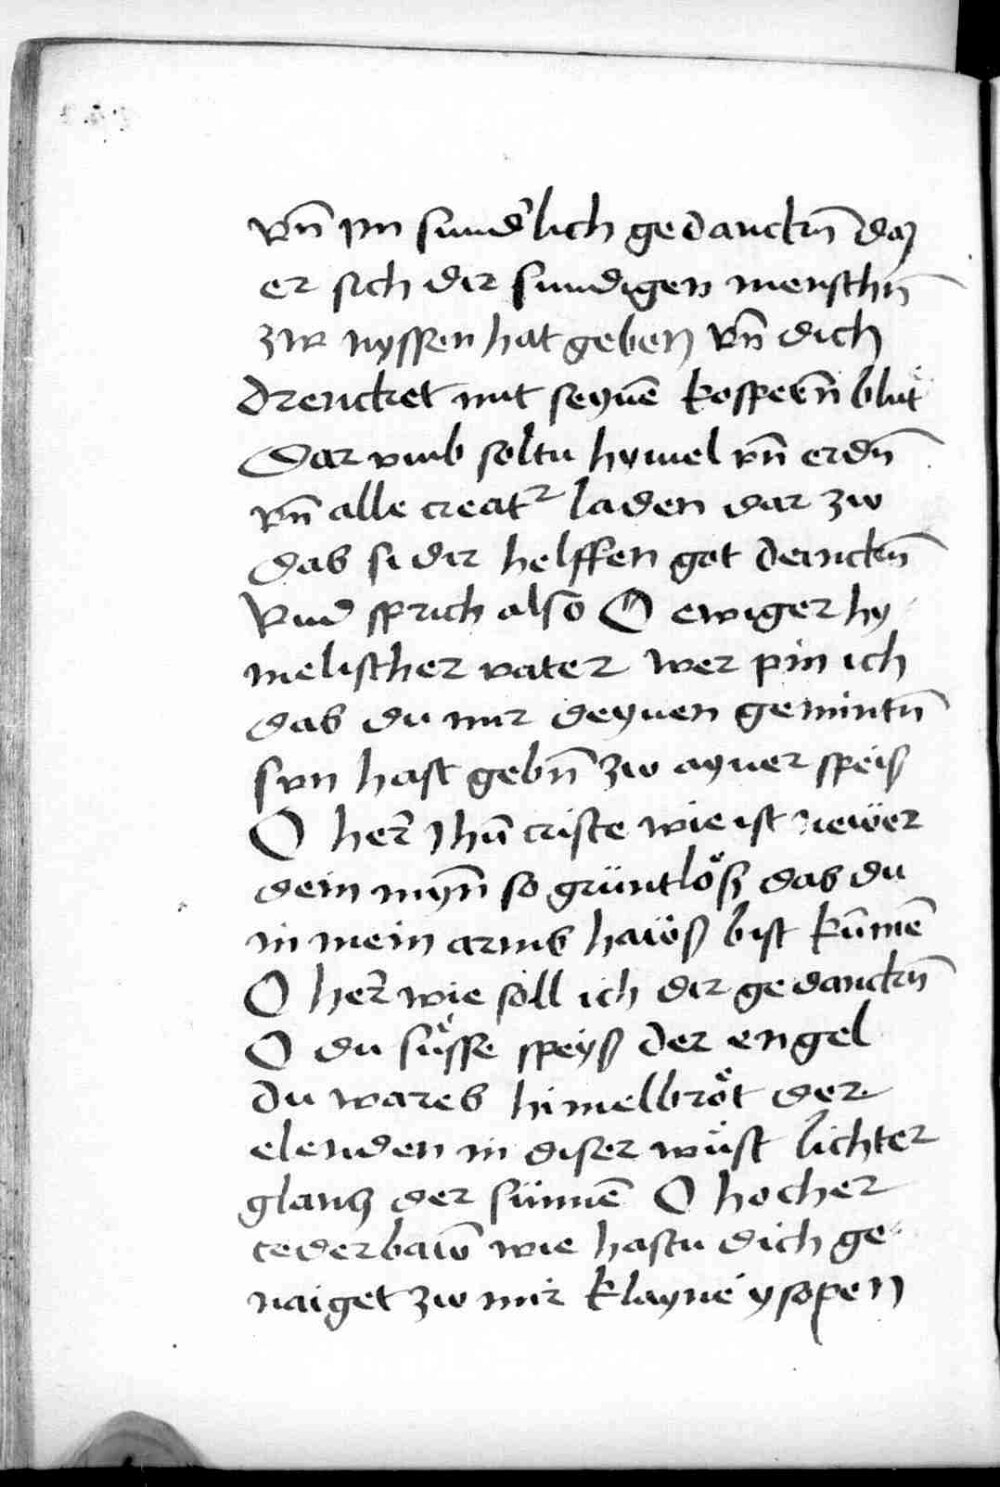 vn̄ im sund'lich gedanckn̄ daz
er sich dir sundigen menschn̄
zw nyssen hat geben vn̄ dich
drencket mit seynē kospern̄ blut
Dar vmb soltu hymel vn̄ erdn̄
vn̄ alle creatr laden dar zw
das si dir helffen got danckn̄
Vnd sprich also O ewiger hy
melischer vater wer pin ich
das du mir deynen gemintn̄
svn hast gebn̄ zw ayner speis
O her Jhū criste wie ist newer
dein myn̄ so grüntlöß das du
in mein arms hawß bist kūmē
O her wie soll ich dir gedanckn̄
O du süsse speyß der engel
du wares himelbröt der
elenden in diser wüst lichter
glantz der sünnē O hocher
cederbaw̄ wie hastu dich ge
naiget zw mir klaynē ysopen